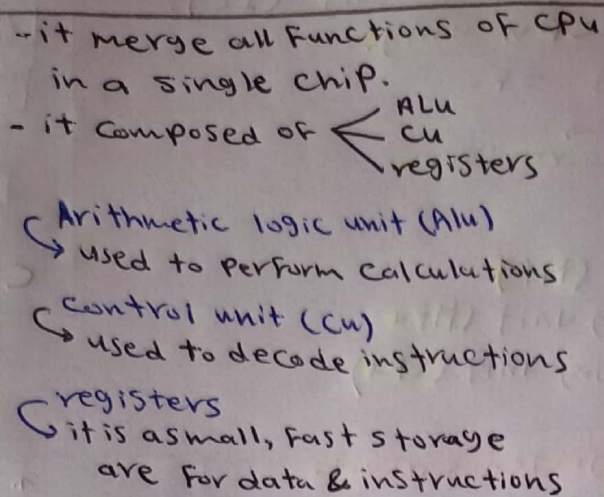 - it merge all Functions of CPU
in a single chip.
- it composed of ALU
CU
registers
Arithmetic logic unit (Alu)
used to perform calculations
control unit (Cu)
used to decode instructions
registers
it is asmall, Fast storage
are for data & instructions